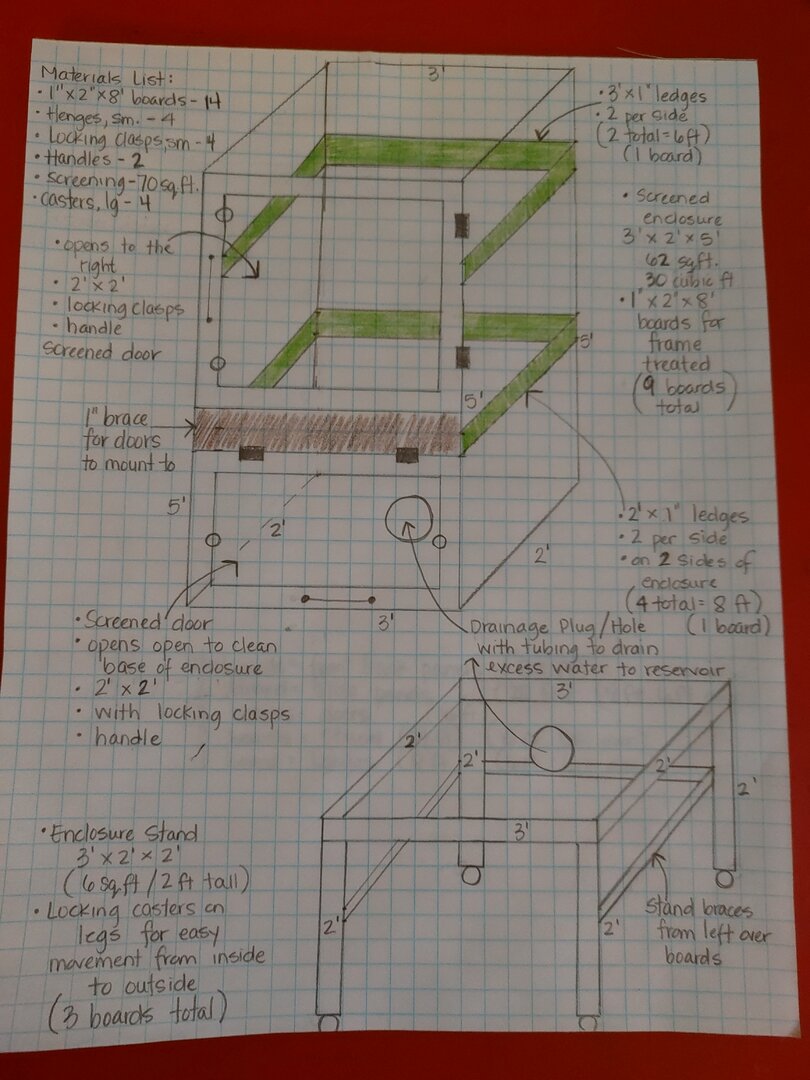 Materials List:
• 1"x2"x8' boards - 14
• Henges, sm. - 4
• Locking clasps, sm - 4
• Handles - 2
• Screening - 70 sq.ft.
• casters, lg - 4
• opens to the
right
• 2' x 2'
• locking clasps
• handle
screened door
1" brace
for doors
to mount to
3'
• 3' x 1" ledges
• 2 per side
(2 total = 6 ft)
(1 board)
• Screened
enclosure
3' x 2' x 5'
62 sq ft.
30 cubic ft
• 1" x 2" x 8'
boards for
frame
treated
(9 boards
total)
5'
5'
5'
2'
2'
3'
• 2' x 1" ledges
• 2 per side
• on 2 sides of
enclosure
(4 total = 8 ft)
(1 board)
• Screened door
• opens open to clean
base of enclosure
• 2' x 2'
• with locking clasps
• handle
Drainage Plug/Hole
with tubing to drain
excess water to reservoir
3'
2'
2'
2'
2'
3'
2'
2'
• Enclosure Stand
3' x 2' x 2'
(6 sq ft / 2 ft tall)
• Locking casters on
legs for easy
movement from inside
to outside
(3 boards total)
Stand braces
from left over
boards